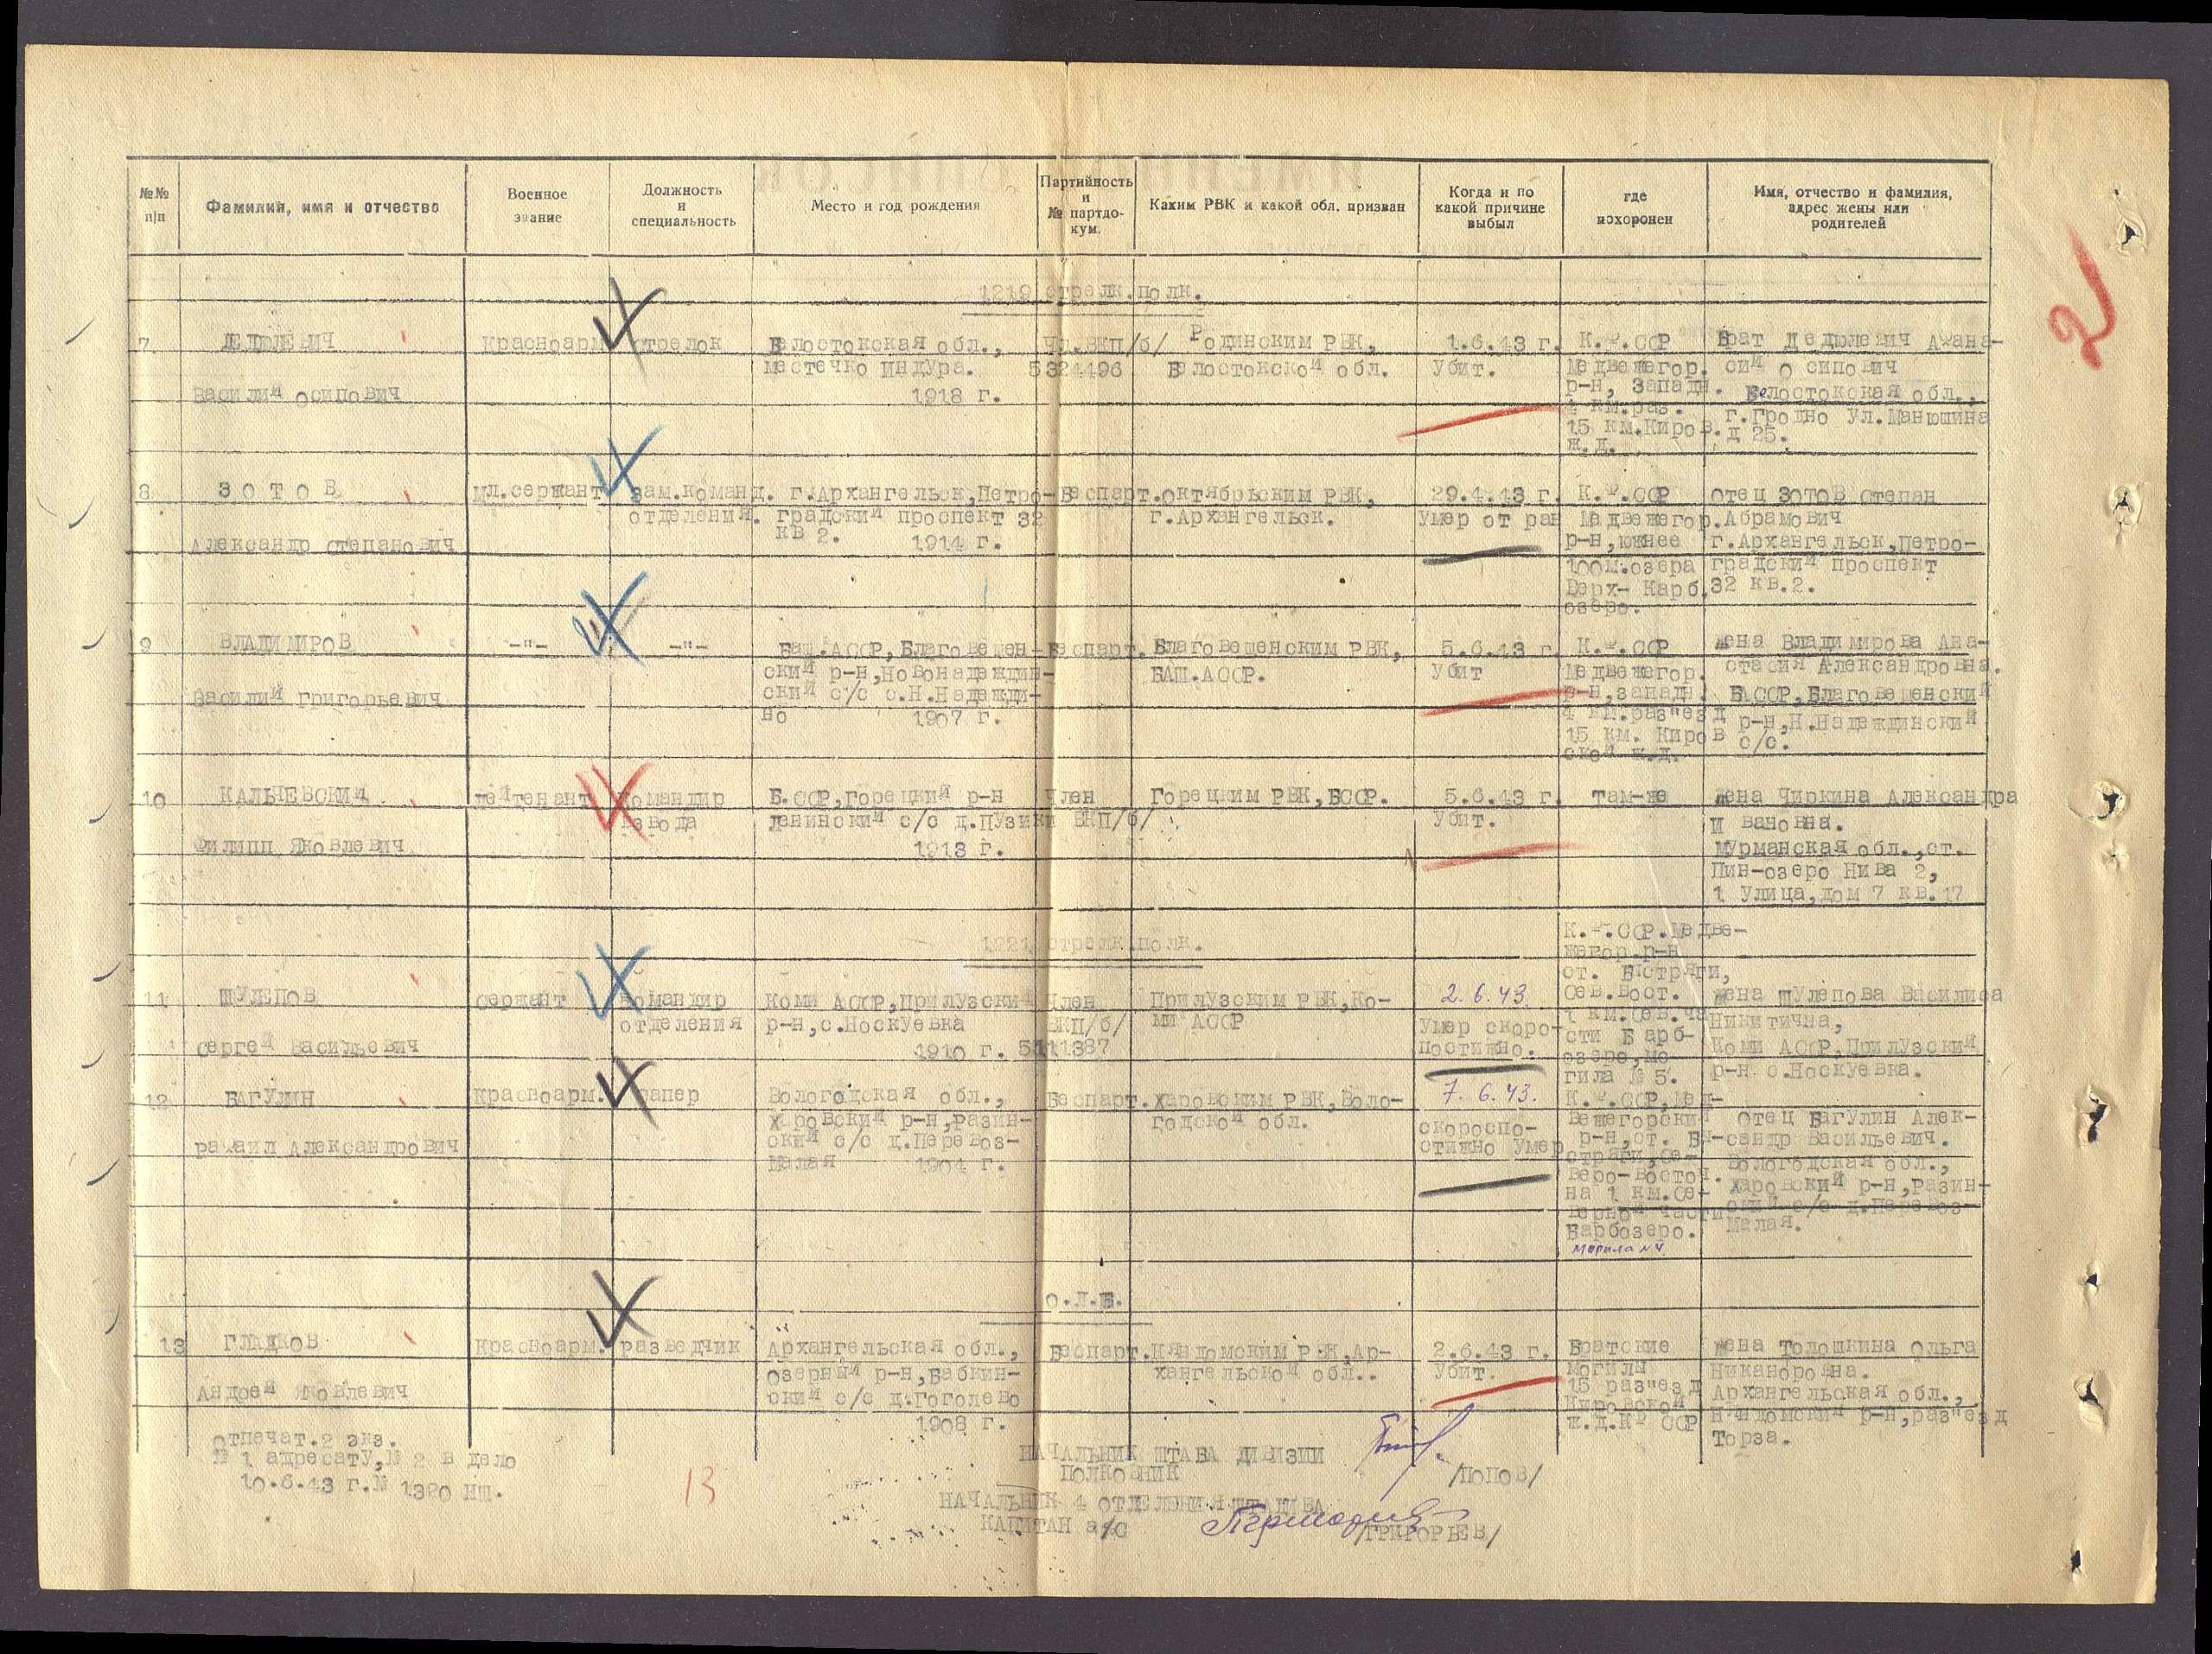 №№ п/п
Фамилия, имя и отчество
Военное звание
Должность и специальность
Место и год рождения
Партийность и № партдокум.
Каким РВК и какой обл. призван
Когда и по какой причине выбыл
где похоронен
Имя, отчество и фамилия, адрес жены или родителей
2
1219 стрелк.полк.
7
ДЕДЮЛЕВИЧ
Василий Осипович
Красноарм.
стрелок
Белостокская обл.,
местечко Индура.
1918 г.
Чл.ВКП/б/
5324496
Родинским РВК,
Белостокской обл.
1.6.43 г.
Убит.
К.Ф.ССР
Медвежегор.
р-н, Западн.
4 км.раз.
15 км.Киров.
ж.д.
Брат Дедюлевич Афана-
сий Осипович
Белостокская обл.,
г.Гродно ул.Манюшина
д 25.
8
ЗОТОВ
Александр Степанович
Мл.сержант
Зам.команд.
отделения.
г.Архангельск,Петро-
градский проспект 32
кв 2. 1914 г.
Беспарт.
Октябрьским РВК,
г.Архангельск.
29.4.43 г.
Умер от ран
К.Ф.ССР
Медвежегор.
р-н,южнее
100м.озера
Верх- Карб.
озеро.
отец Зотов Степан
Абрамович
г.Архангельск,Петро-
градский проспект
32 кв.2.
9
ВЛАДИМИРОВ
Василий Григорьевич
-"-
-"-
Баш.АССР,Благовещен-
ский р-н,Новонадеждин-
ский с/с с.Н.Надежди-
но 1907 г.
Беспарт.
Благовещенским РВК,
БАШ.АССР.
5.6.43 г.
Убит
К.Ф.ССР
Медвежегор.
р-н,западн.
4 км.раз"езд
15 км. Киров
ской ж.д.
жена Владимирова Ана-
стасия Александровна.
БАССР,Благовещенский
р-н,Н.Надеждинский
с/с.
10
КАЛЬЧЕВСКИЙ
Филипп Яковлевич
лейтенант
командир
взвода
Б.ССР,Горецкий р-н
Ленинский с/с д.Пузики
1913 г.
Член
ВКП/б/
Горецким РВК,БССР.
5.6.43 г.
Убит.
там-же
жена Чиркина Александра
Ивановна.
Мурманская обл.,ст.
Пин-озеро Нива 2,
1 Улица,дом 7 кв.17
1221 стрелк.полк.
11
ШУЛЕПОВ
Сергей Васильевич
сержант
командир
отделения
Коми АССР,Прилузский
р-н,с.Носкуевка
1910 г.
Член
ВКП/б/
5111387
Прилузским РВК,Ко-
ми АССР
2.6.43.
Умер скоро-
постижно.
К.Ф.ССР.Медве-
жегор.р-н
ст. Быстряги,
Сев.Вост.
1 км.Сев.ча
сти Барб-
озеро,мо-
гила № 5.
жена Шулепова Василиса
Никитична,
Коми АССР,Прилузский
р-н с.Носкуевка.
12
БАГУЛИН
Рафаил Александрович
Красноарм.
сапер
Вологодская обл.,
Харовский р-н,Разин-
ский с/с д.Перевоз-
Малая 1904 г.
Беспарт.
Харовским РВК,Воло-
годской обл.
7.6.43.
скоропо-
стижно умер
К.Ф.ССР,Мед-
вежегорский
р-н,ст. Бы-
стряги,Се-
веро-Восточ.
на 1 км.Се-
верной части
Барбозеро.
могила №4
отец Багулин Алек-
сандр Васильевич.
Вологодская обл.,
Харовский р-н,Разин-
ский с/с д.Перевоз-
Малая.
О.Л.Б.
13
ГЛАДКОВ
Андрей Яковлевич
Красноарм.
разведчик
Архангельская обл.,
озерный р-н,Бабкин-
ский с/с д.Гоголево
1908 г.
Беспарт.
Няндомским РВК,Ар-
хангельской обл..
2.6.43 г.
Убит.
Братские
могилы
15 раз"езд
Кировской
ж.д.КФ ССР
жена Толошкина Ольга
Никаноровна.
Архангельская обл.,
Няндомский р-н,раз"езд
Торза.
отпечат.2 экз.
№ 1 адресату,№ 2 в дело
10.6.43 г.№ 1320 нш.
13
НАЧАЛЬНИК ШТАБА ДИВИЗИИ
ПОЛКОВНИК
/ПОПОВ/
НАЧАЛЬНИК 4 ОТДЕЛЕНИЯ ШТАДИВА
КАПИТАН а/с
/ГРИГОРЬЕВ/